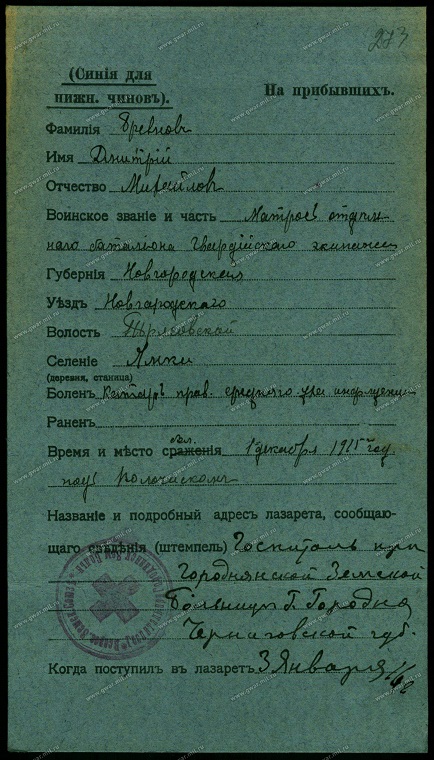 273
(Синія для
нижн. чиновъ).
На прибывшихъ.
Фамилія Бревновъ
Имя Дмитрій
Отчество Михайловъ
Воинское званіе и часть Матросъ отдѣль
наго баталіона Гвардійскаго экипажа
Губернія Новгородская
Уѣздъ Новгородскаго
Волость
Селеніе Ямки
(деревня, станица)
Боленъ Катаръ прав. средняго уха
Раненъ
Время и мѣсто сраженія 1 декабря 1915 год
подъ
Названіе и подробный адресъ лазарета, сообщаю-
щаго свѣдѣнія (штемпель) Госпиталь при
Городнянской Земской
Больницы Г. Городня
Черниговской губ.
Когда поступилъ въ лазаретъ 3 Января
www.gwar.mil.ru